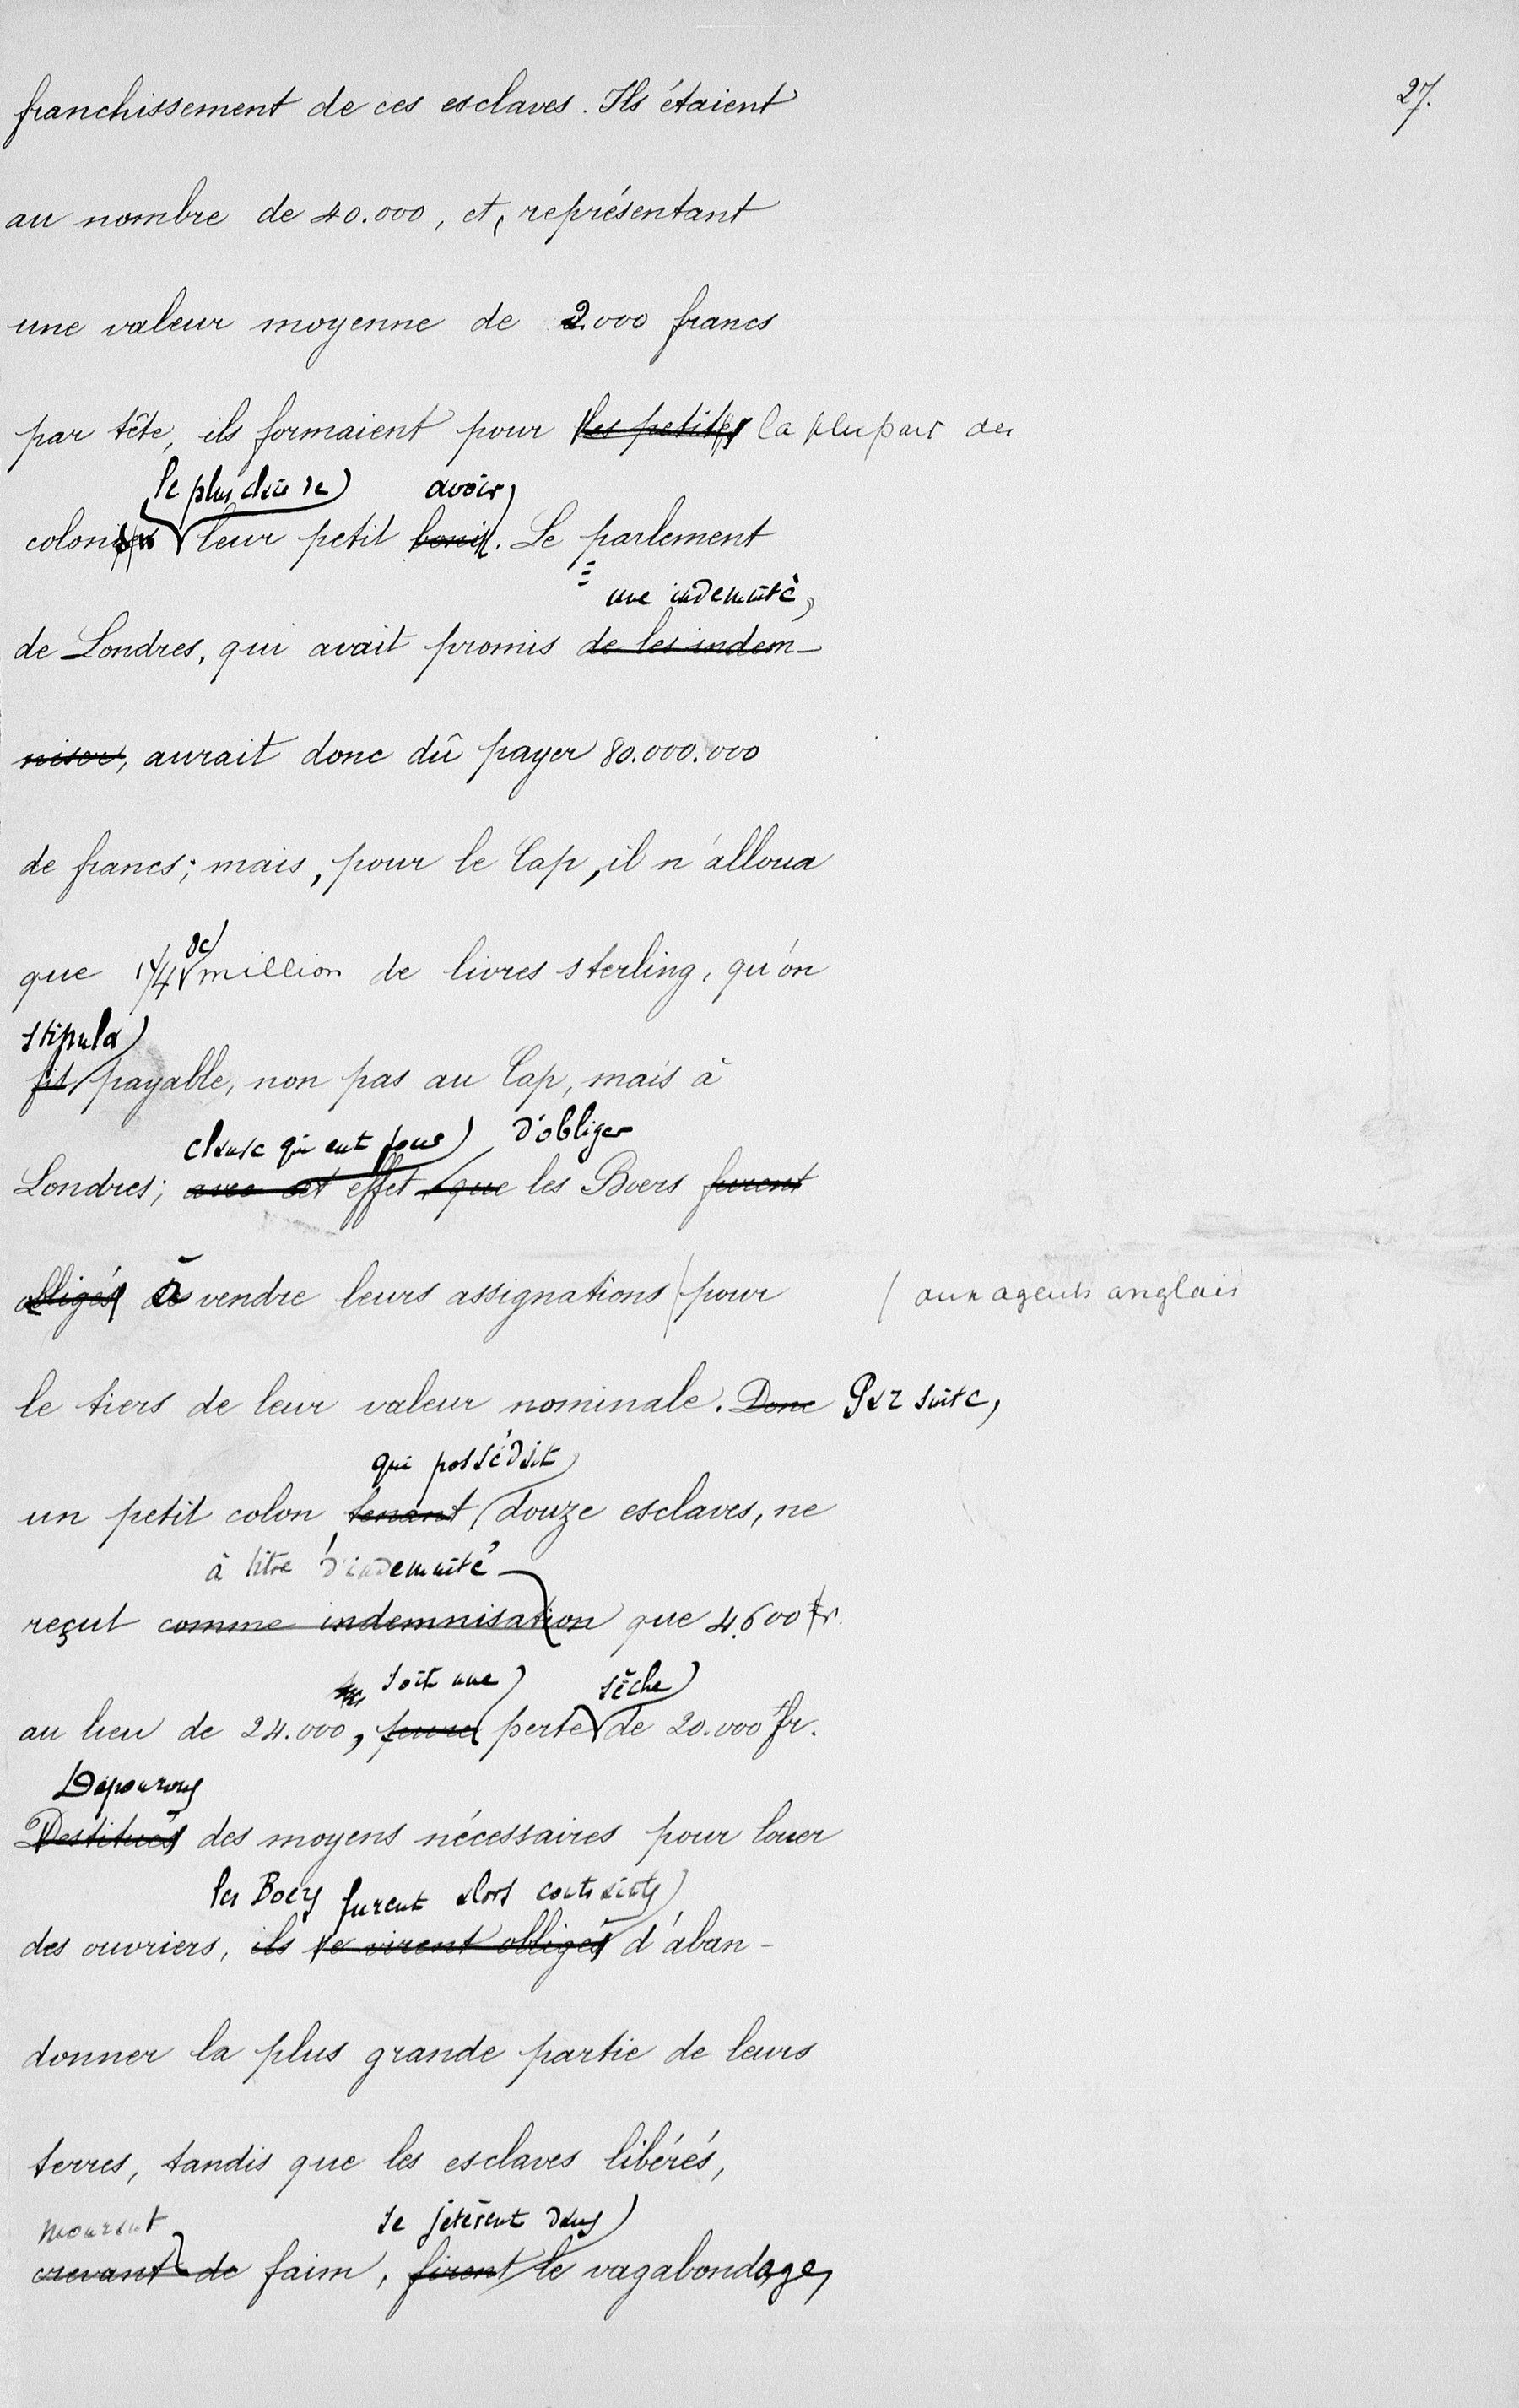 27.
franchissement de ces esclaves. Ils étaient
au nombre de 40.000, et, représentant
une valeur moyenne de 2.000 francs
par tête, ils formaient pour les petits la plupart des
le plus clair de avoir
colons leur petit boni. Le parlement
une indemnité,
de Londres, qui avait promis de les indem-
niser, aurait donc dû payer 80.000.000
de francs; mais, pour le Cap, il n'alloua
de
que 1 1/4 million de livres sterling, qu'on
stipula
fit payable, non pas au Cap, mais à
clause qui eut pour d'obliger
Londres; avec cet effet que les Boers furent
obligés à vendre leurs assignations / pour / aux agents anglais
le tiers de leur valeur nominale. Donc Par suite,
qui possédait
un petit colon tenant douze esclaves, ne
à titre d'indemnité
reçut comme indemnisation que 4.600 fr.
soit une sèche
au lieu de 24.000, perte de 20.000 fr.
Dépourvus
Destitués des moyens nécessaires pour louer
les Boers furent alors contraints
des ouvriers, ils se virent obligés d'aban-
donner la plus grande partie de leurs
terres, tandis que les esclaves libérés,
mourant se jetèrent dans
crevant de faim, firent le vagabondage,